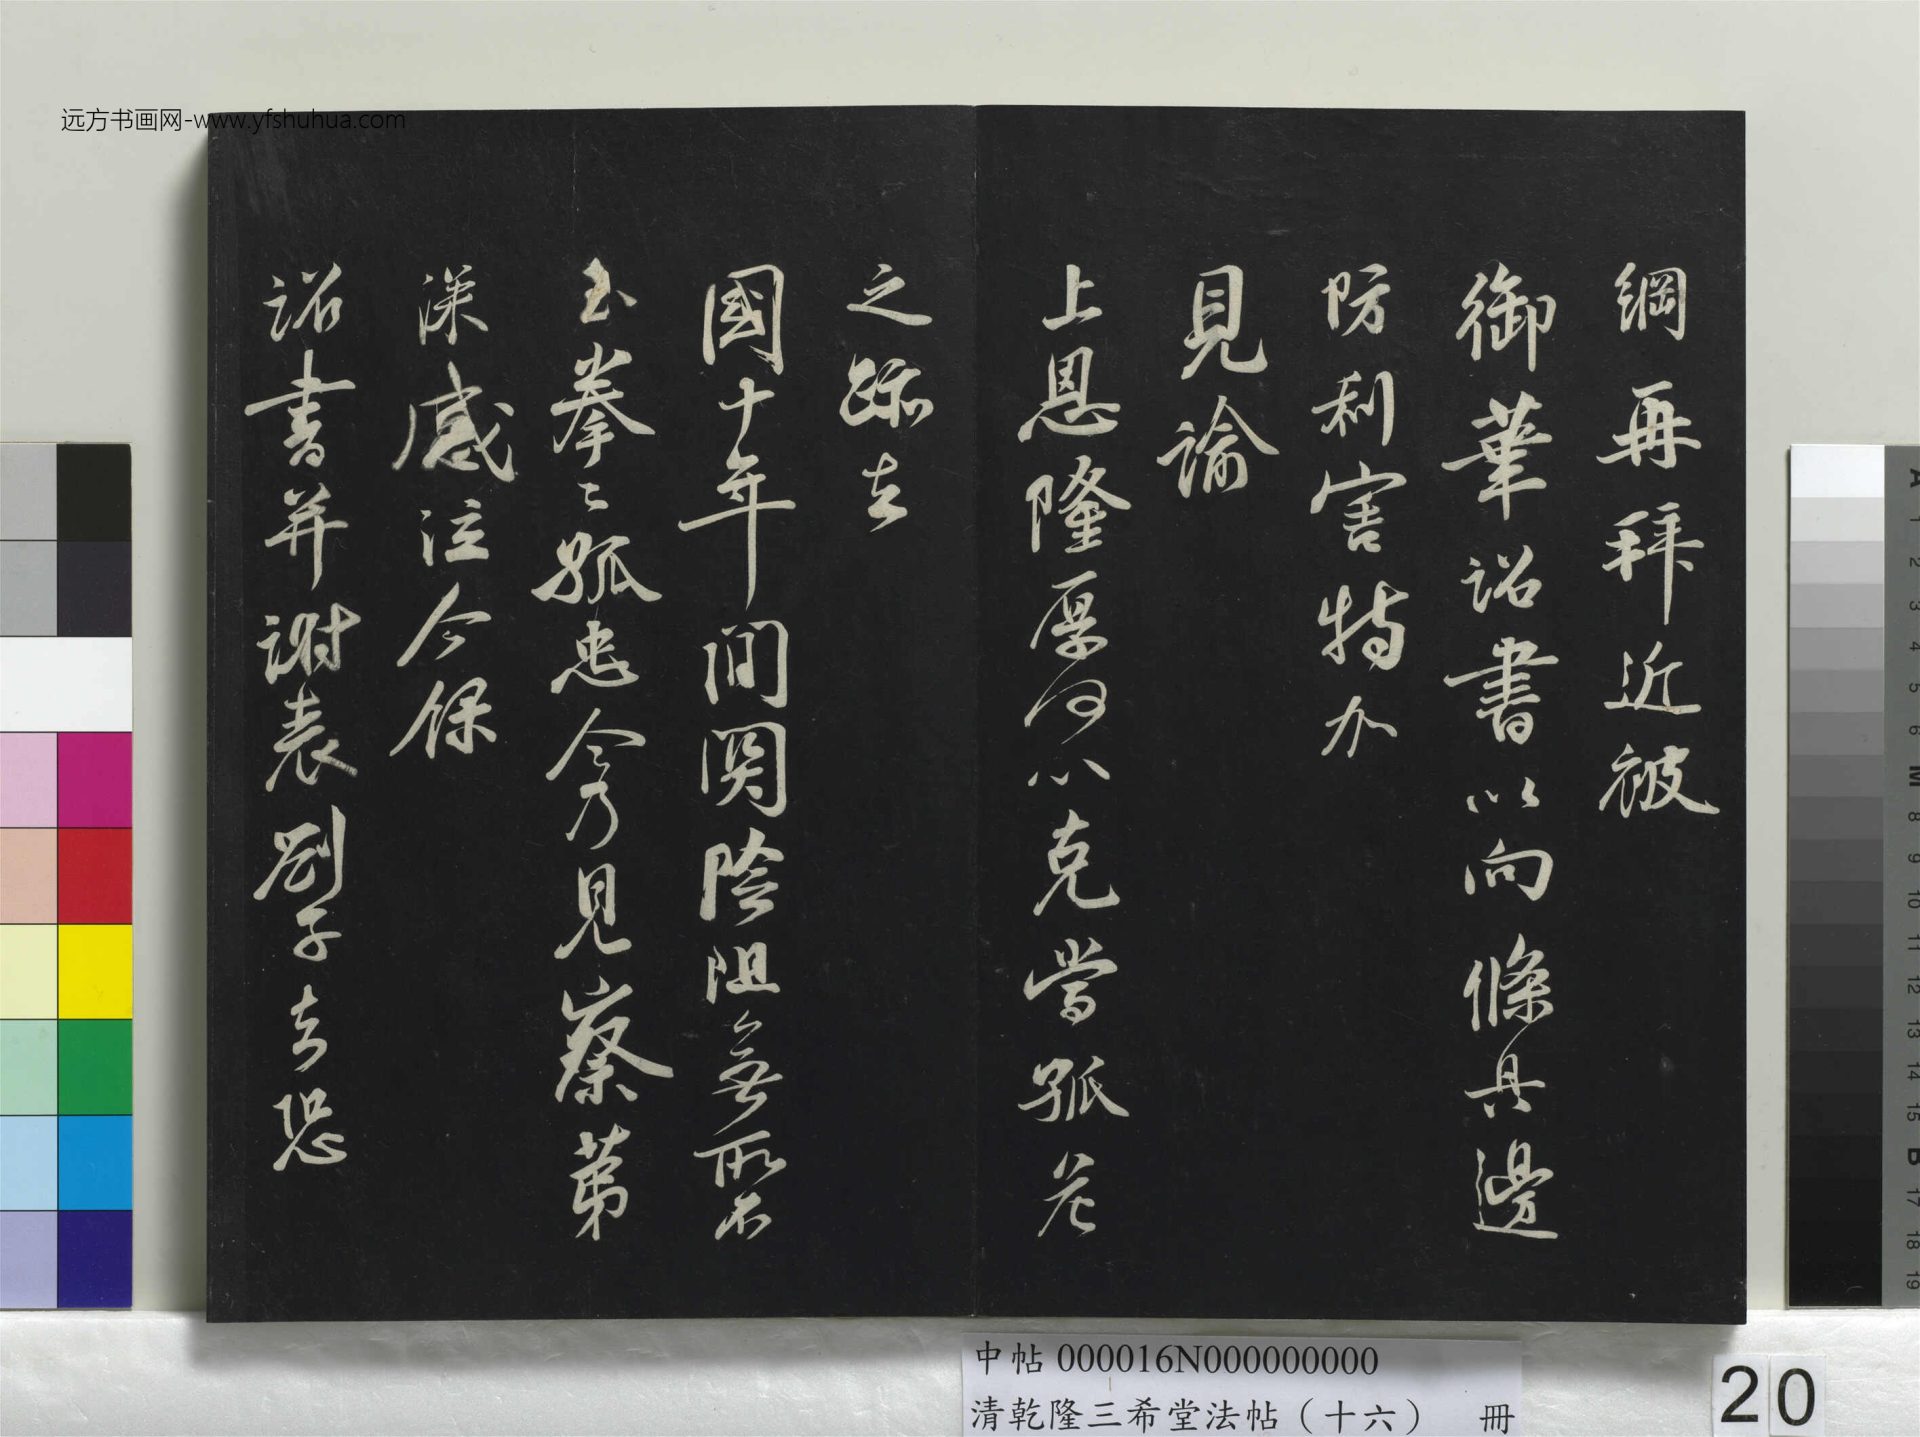 远方书画网-www.yfshuhua.com
綱再拜近被
御筆詔書以向條具邊
防利害特加
見諭
上恩隆厚何以克當孤危
之跡去
國十年間關險阻無所不
至拳〻孤忠今乃見察第
深感泣今錄
詔書并謝表劄子去恐
中帖 000016N000000000
清乾隆三希堂法帖（十六） 冊
20
A 1 2 3 4 5 6 M 8 9 10 11 12 13 14 15 B 17 18 19